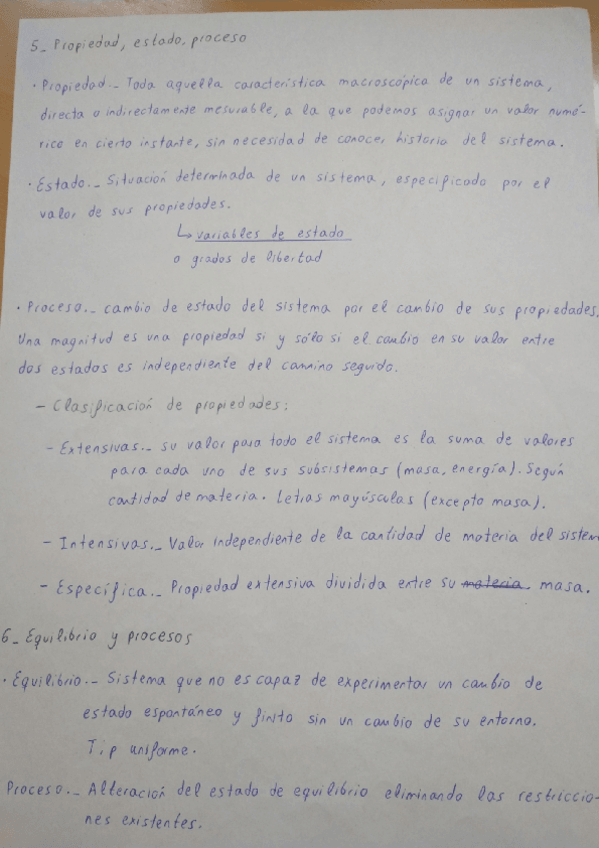 5_ Propiedad, estado, proceso
· Propiedad._ Toda aquella característica macroscópica de un sistema,
directa o indirectamente mesurable, a la que podemos asignar un valor numé-
rico en cierto instante, sin necesidad de conocer historia del sistema.
· Estado._ Situación determinada de un sistema, especificada por el
valor de sus propiedades.
↳ variables de estado
o grados de libertad
· Proceso._ cambio de estado del sistema por el cambio de sus propiedades.
Una magnitud es una propiedad si y sólo si el cambio en su valor entre
dos estados es independiente del camino seguido.
- Clasificación de propiedades:
- Extensivas._ su valor para todo el sistema es la suma de valores
para cada uno de sus subsistemas (masa, energía). Según
cantidad de materia. Letras mayúsculas (excepto masa).
- Intensivas._ Valor independiente de la cantidad de materia del sistem
- Específica._ Propiedad extensiva dividida entre su materia masa.
6_ Equilibrio y procesos
· Equilibrio._ Sistema que no es capaz de experimentar un cambio de
estado espontáneo y finito sin un cambio de su entorno.
T, p uniforme.
Proceso._ Alteración del estado de equilibrio eliminando las restriccio-
nes existentes.